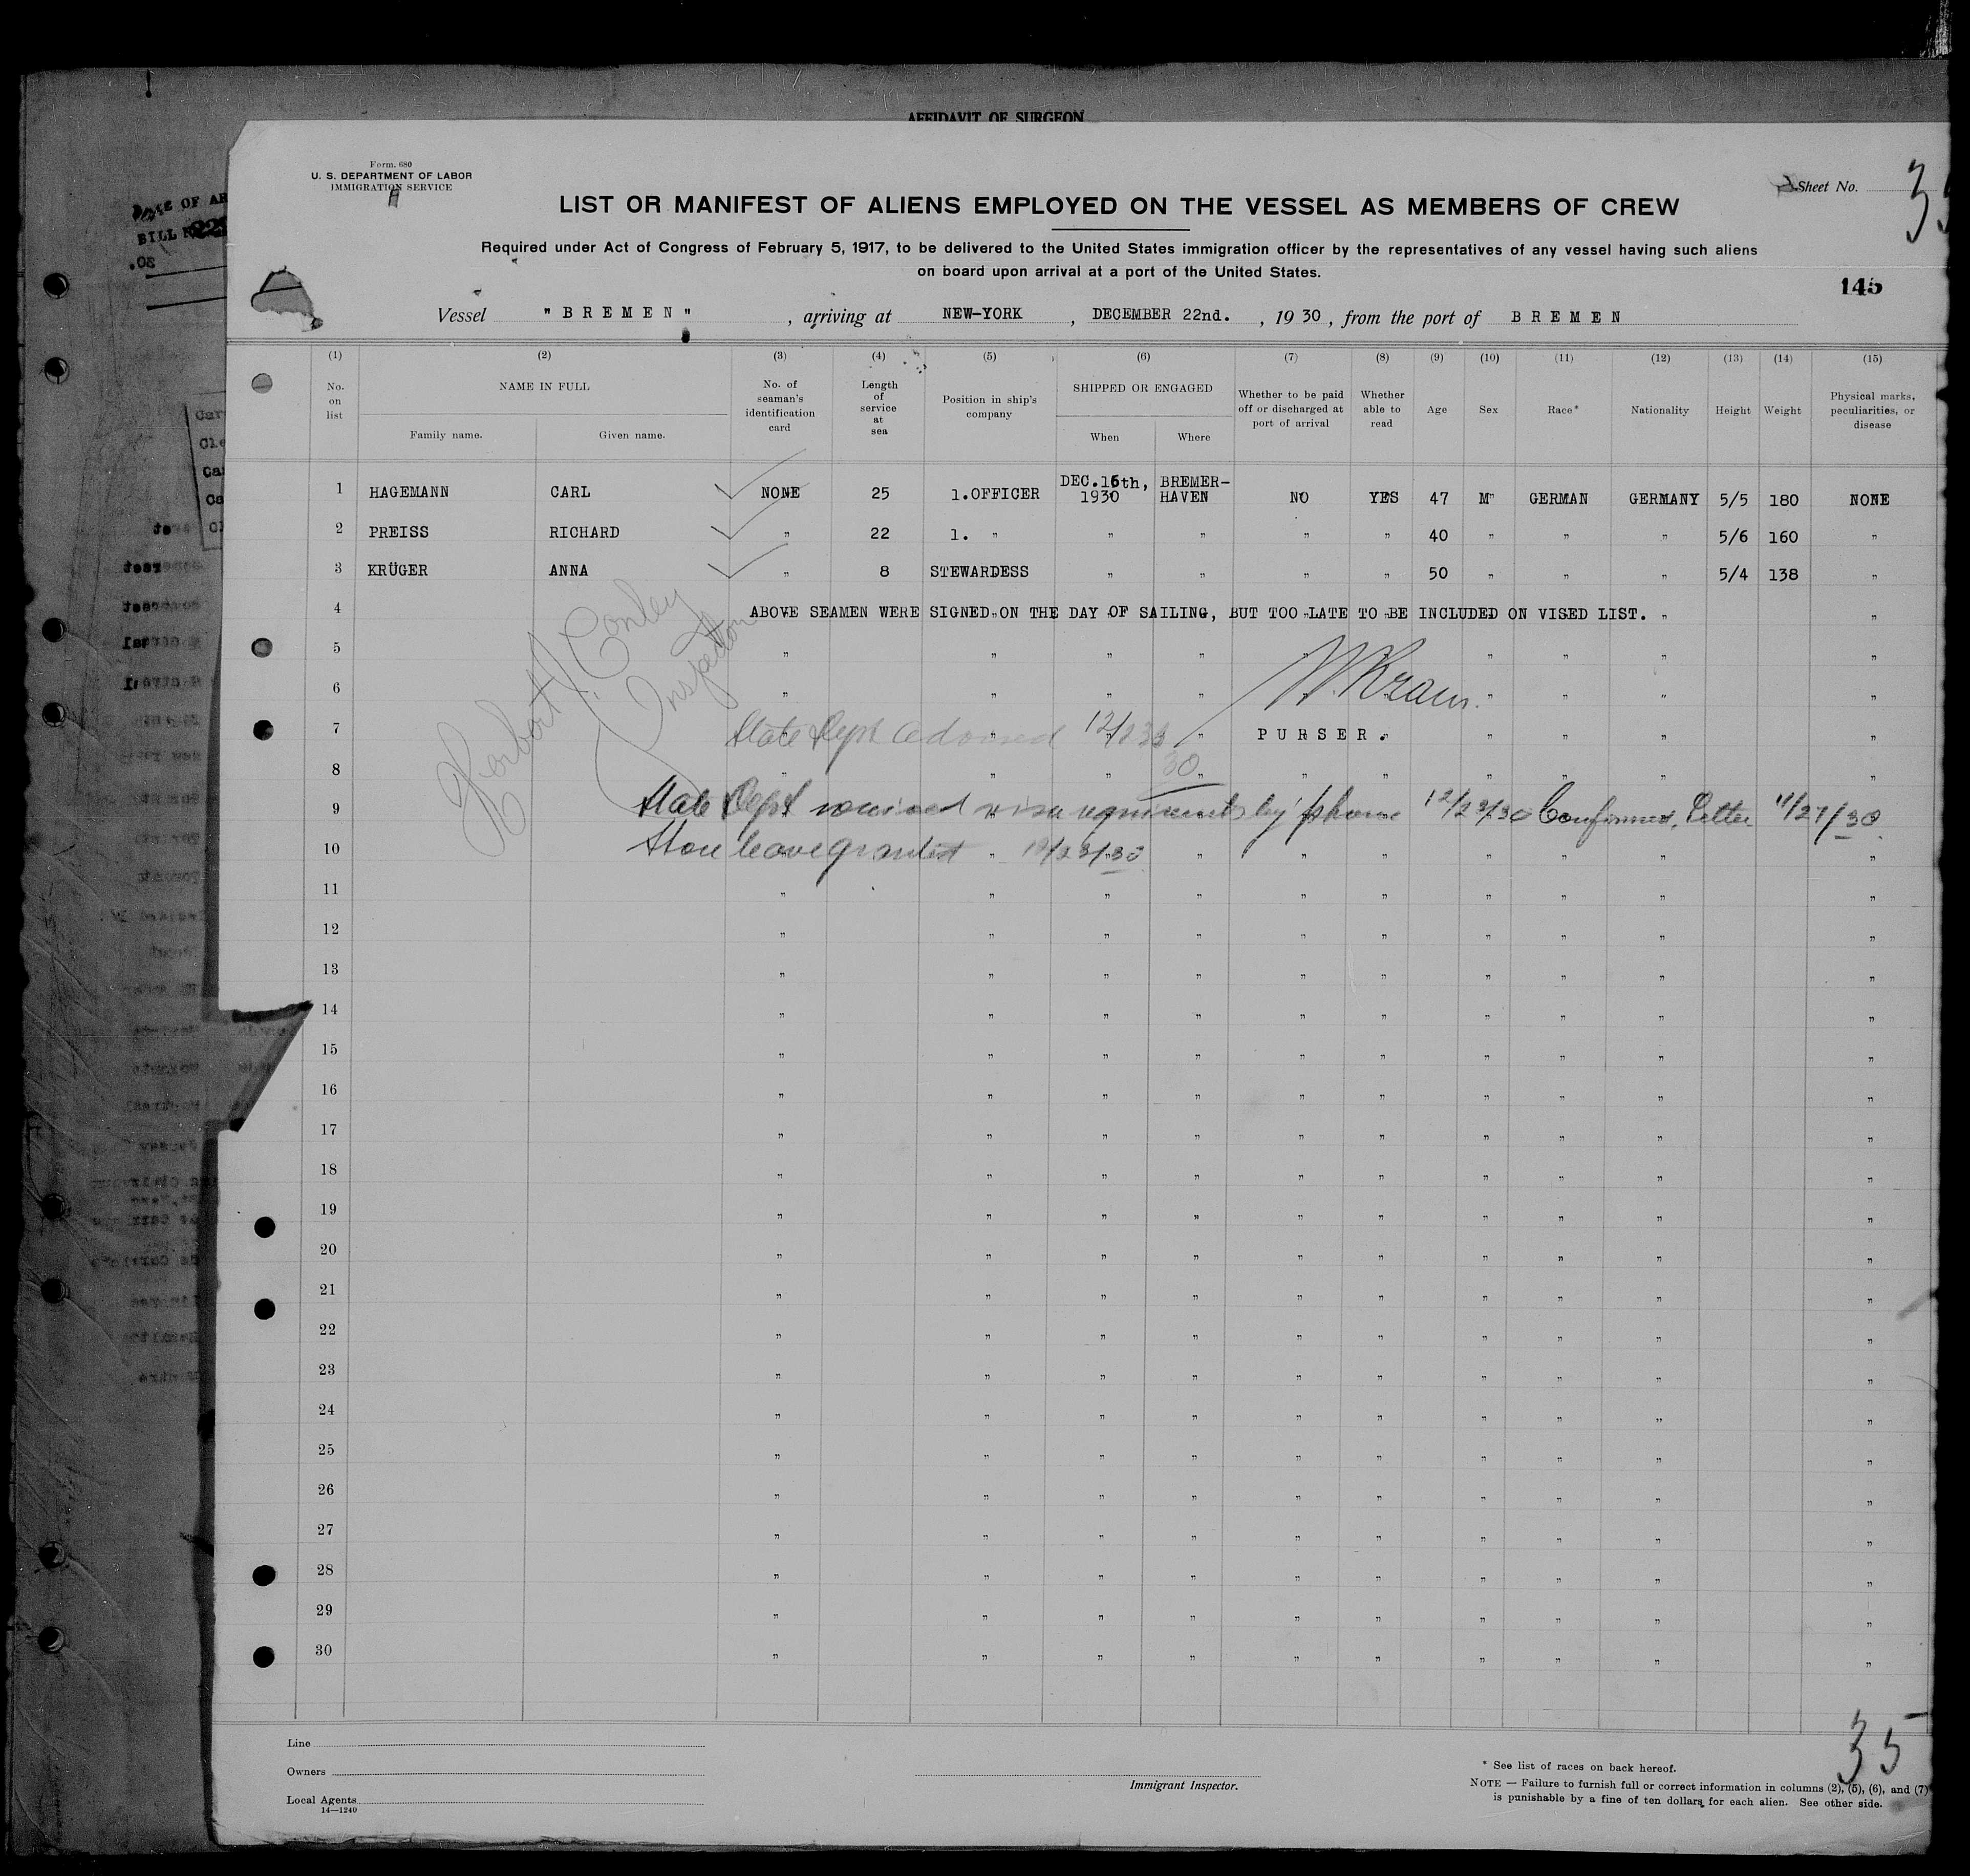 AFFIDAVIT OF SURGEON
Form. 680
U. S. DEPARTMENT OF LABOR
IMMIGRATION SERVICE
Sheet No. 35
LIST OR MANIFEST OF ALIENS EMPLOYED ON THE VESSEL AS MEMBERS OF CREW
Required under Act of Congress of February 5, 1917, to be delivered to the United States immigration officer by the representatives of any vessel having such aliens
on board upon arrival at a port of the United States.
145
Vessel "BREMEN", arriving at NEW-YORK, DECEMBER 22nd., 1930, from the port of BREMEN
(1) (2) (3) (4) (5) (6) (7) (8) (9) (10) (11) (12) (13) (14) (15)
No. on list
NAME IN FULL
Family name. Given name.
No. of seaman's identification card
Length of service at sea
Position in ship's company
SHIPPED OR ENGAGED
When Where
Whether to be paid off or discharged at port of arrival
Whether able to read
Age
Sex
Race*
Nationality
Height
Weight
Physical marks, peculiarities, or disease
1 HAGEMANN CARL NONE 25 1.OFFICER DEC.16th, 1930 BREMER-HAVEN NO YES 47 M GERMAN GERMANY 5/5 180 NONE
2 PREISS RICHARD " 22 1. " " " " " 40 " " " 5/6 160 "
3 KRÜGER ANNA " 8 STEWARDESS " " " " 50 " " " 5/4 138 "
4 ABOVE SEAMEN WERE SIGNED ON THE DAY OF SAILING, BUT TOO LATE TO BE INCLUDED ON VISED LIST. " "
5 " " " " " " " " " "
6 " " " " " " " "
Herbert J. Conley
Inspector
7 State Dept 12/23/30 PURSER. " " " "
8 " " " " " " " " "
9 State Dept waived visa requirements by 'phone 12/23/30 Confirmed, Letter
10 Shore leave granted 12/23/30 " " " " " " "
11 " " " " " " " " " "
12 " " " " " " " " " "
13 " " " " " " " " " "
14 " " " " " " " " " "
15 " " " " " " " " " "
16 " " " " " " " " " "
17 " " " " " " " " " "
18 " " " " " " " " " "
19 " " " " " " " " " "
20 " " " " " " " " " "
21 " " " " " " " " " "
22 " " " " " " " " " "
23 " " " " " " " " " "
24 " " " " " " " " " "
25 " " " " " " " " " "
26 " " " " " " " " " "
27 " " " " " " " " " "
28 " " " " " " " " " "
29 " " " " " " " " " "
30 " " " " " " " " " "
35
Line
Owners
Local Agents
14—1240
Immigrant Inspector.
* See list of races on back hereof.
NOTE — Failure to furnish full or correct information in columns (2), (5), (6), and (7)
is punishable by a fine of ten dollars for each alien. See other side.